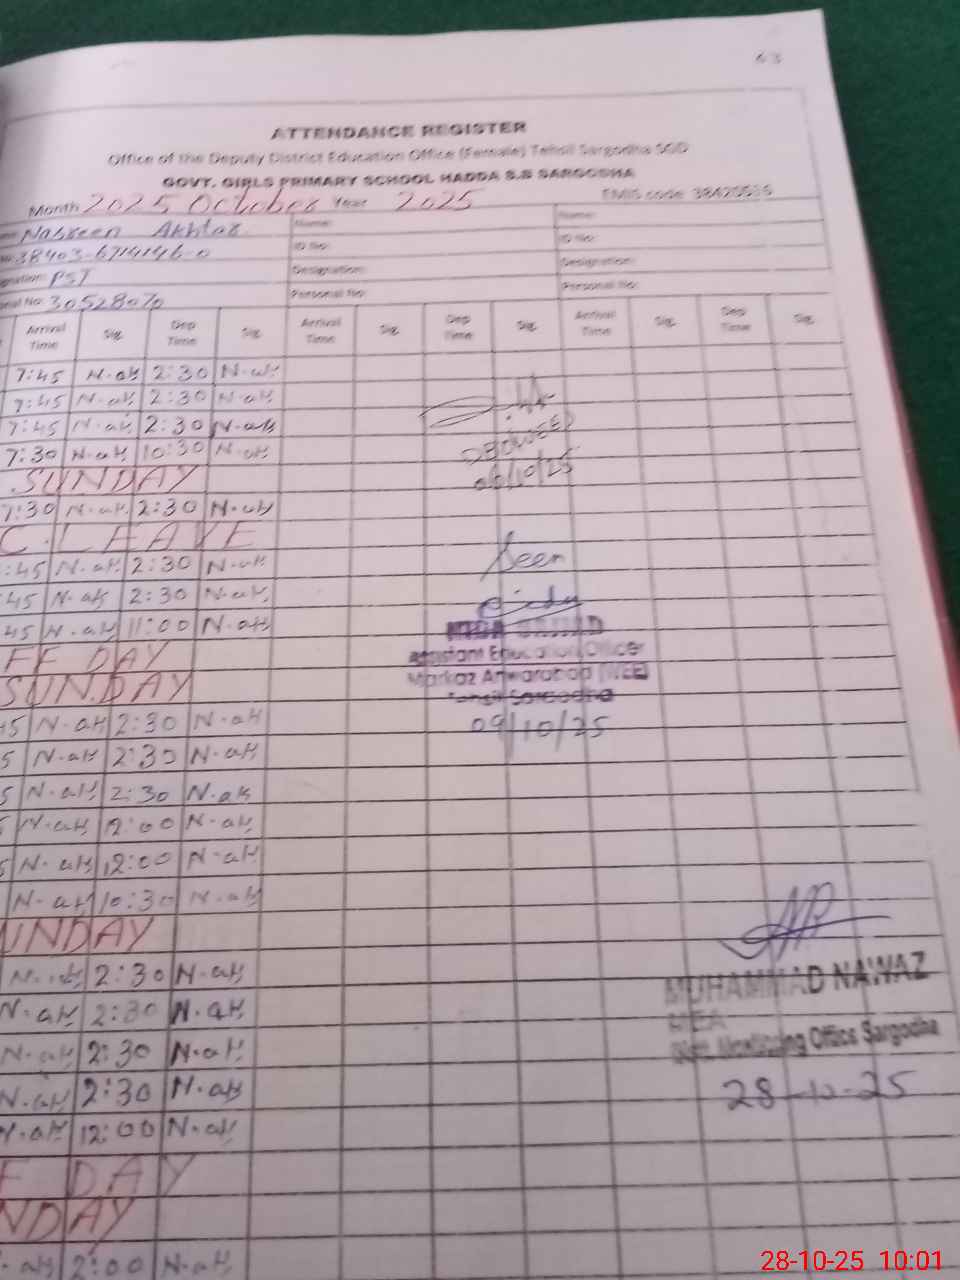 63
ATTENDANCE REGISTER
Office of the Deputy District Education Office (Female) Tehsil Sargodha SGD
GOVT. GIRLS PRIMARY SCHOOL HADDA S.B SARGODHA
EMIS code
Month 2025 October Year 2025
Nasreen Akhtar Name: Name:
38403-6714146-0 ID No: ID No:
PST Designation: Designation:
No: 30528070 Personal No: Personal No:
Arrival Time Sig. Dep Time Sig. Arrival Time Sig. Dep Time Sig. Arrival Time Sig. Dep Time Sig.
7:45 N-aK 2:30 N-aK
7:45 N-aK 2:30 N-aK
7:45 N-aK 2:30 N-aK
7:30 N-aK 10:30 N-aK
SUNDAY
7:30 N-aK 2:30 N-aK
C. LEAVE
:45 N-aK 2:30 N-aK
Seen
45 N-aK 2:30 N-aK
45 N-aK 11:00 N-aK
Assistant Education Officer
FF DAY
Markaz
SUNDAY
Tehsil Sargodha
45 N-aK 2:30 N-aK
09/10/25
5 N-aK 2:30 N-aK
5 N-aK 2:30 N-aK
N-aK 12:00 N-aK
5 N-aK 12:00 N-aK
N-aK 10:30 N-aK
UNDAY
N-aK 2:30 N-aK
MUHAMMAD NAWAZ
N-aK 2:30 N-aK
MEA
N-aK 2:30 N-aK
Distt. Monitoring Office Sargodha
N-aK 2:30 N-aK
28-10-25
N-aK 12:00 N-aK
F DAY
NDAY
aK 2:00 N-aK
28-10-25 10:01